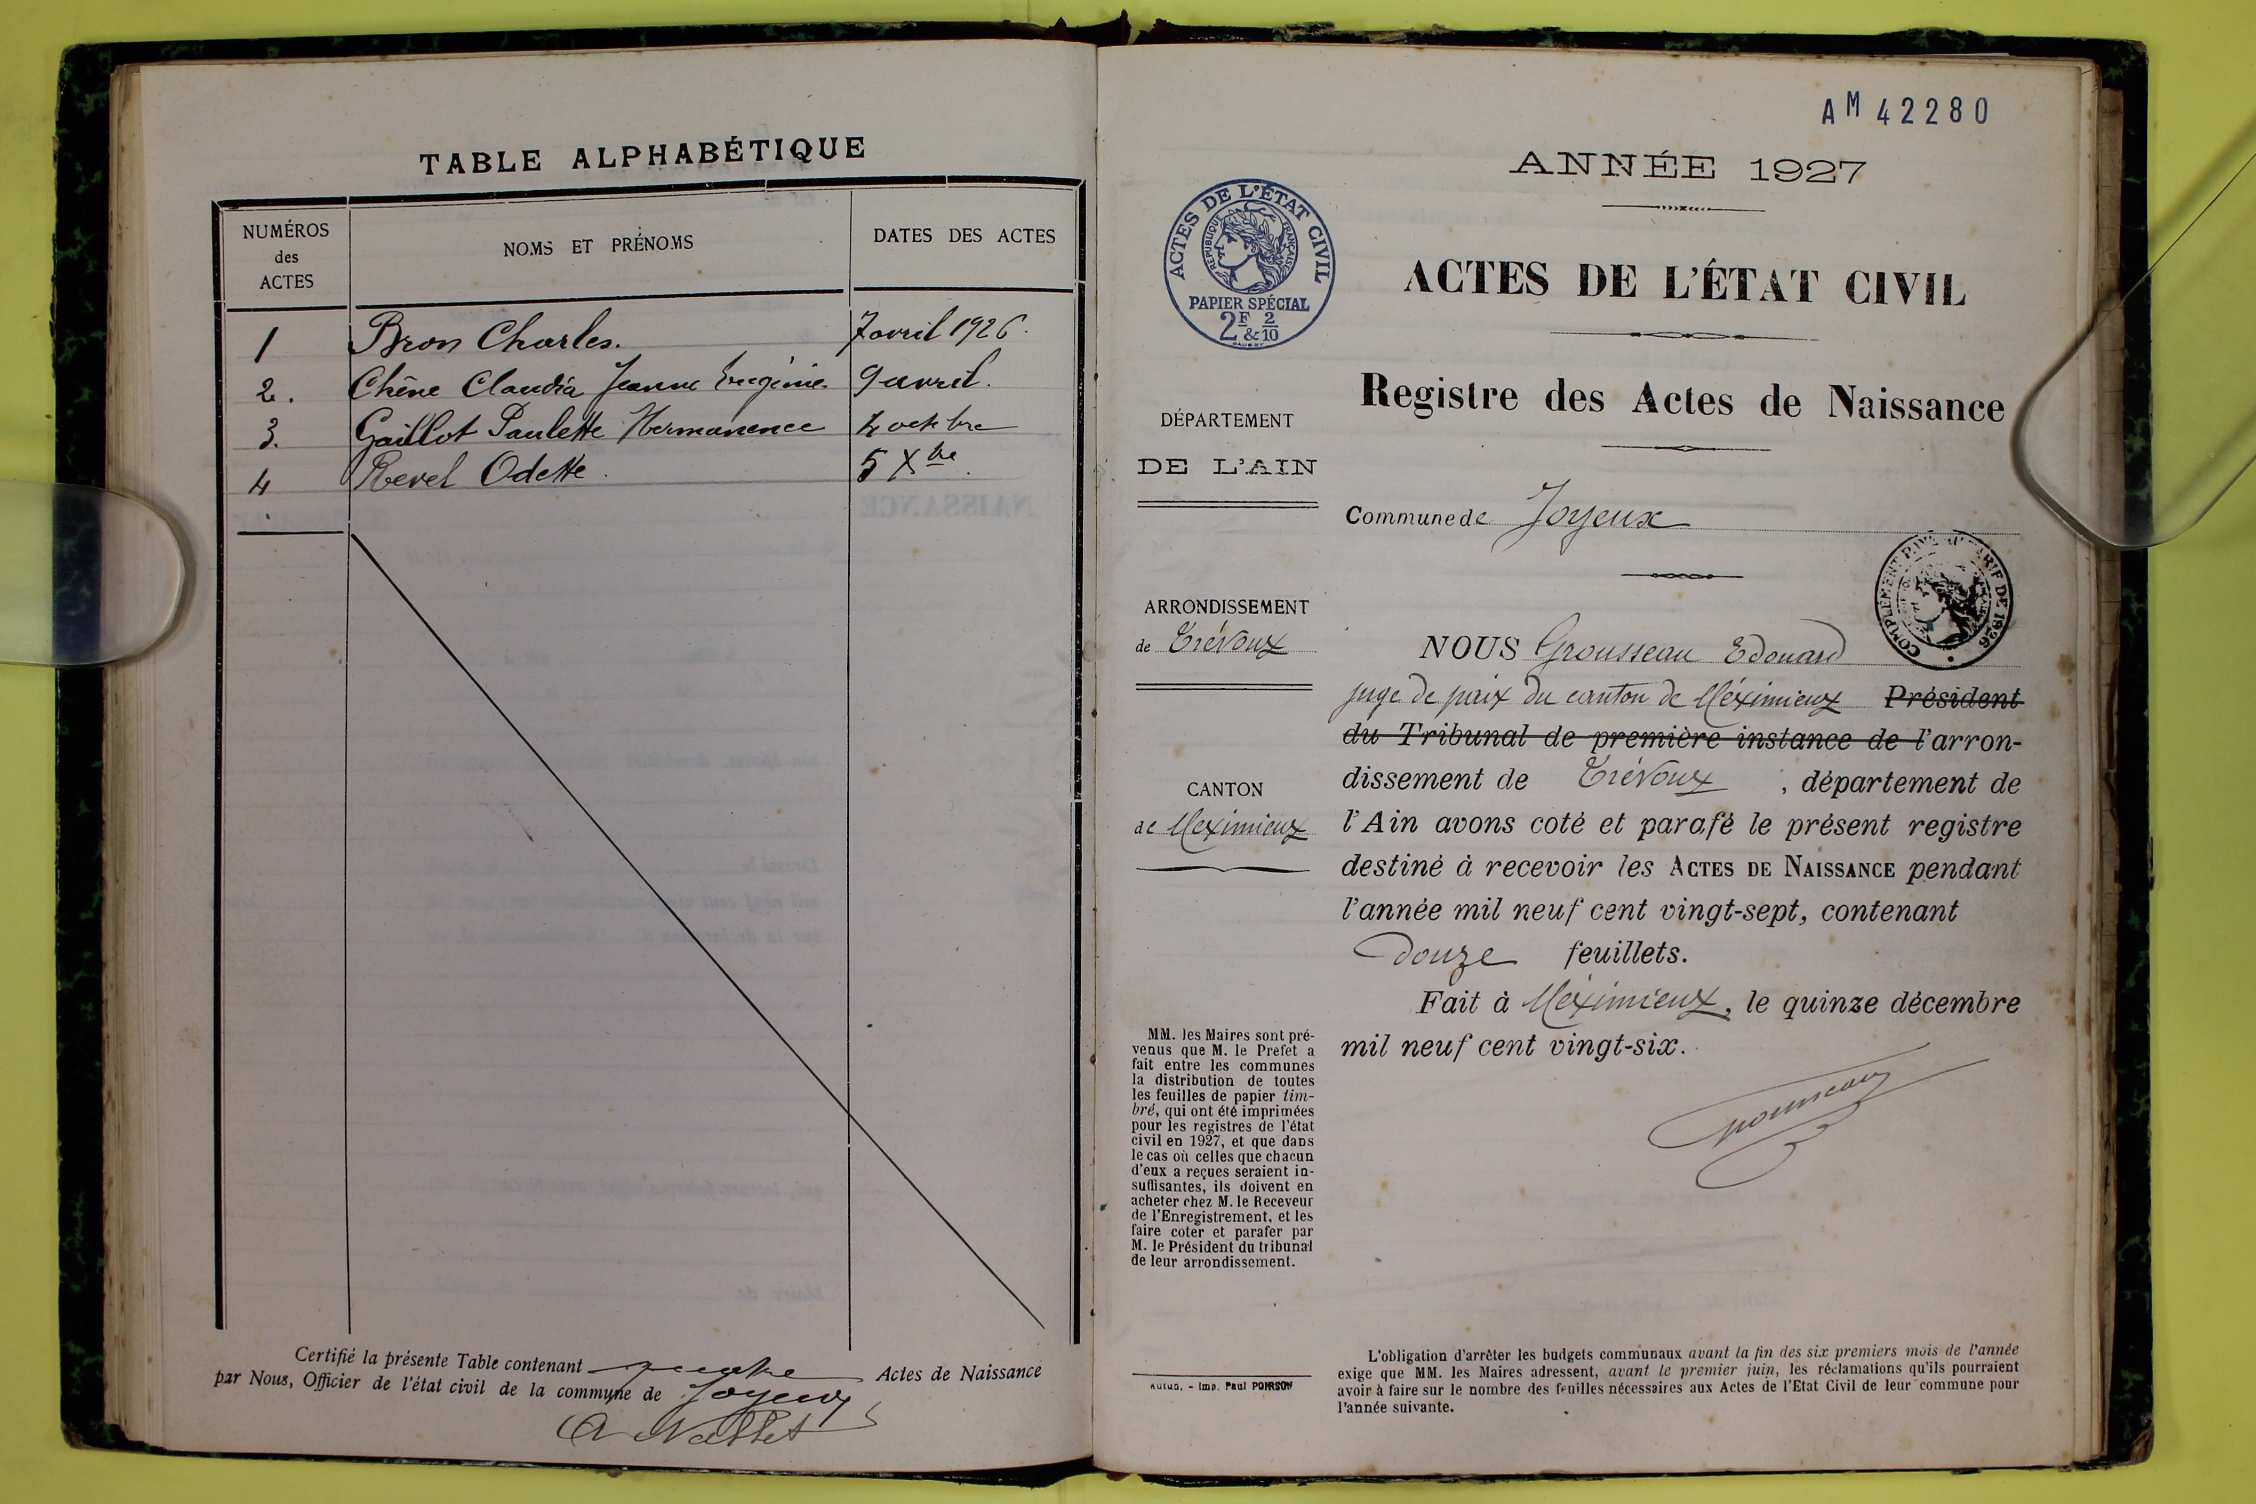 TABLE ALPHABÉTIQUE
NUMÉROS
des
ACTES
NOMS ET PRÉNOMS
DATES DES ACTES
1 Bron Charles. 7 avril 1926.
2. Chêne Claudia Jeanne Eugénie 9 avril.
3. Gaillot Paulette Hermanence 4 octbre
4 Revel Odette. 5 Xbre.
Certifié la présente Table contenant quatre Actes de Naissance
par Nous, Officier de l'état civil de la commune de Joyeux
AM 42280
ANNÉE 1927
ACTES DE L'ÉTAT CIVIL
RÉPUBLIQUE FRANÇAISE
PAPIER SPÉCIAL
2F & 2/10
ACTES DE L'ÉTAT CIVIL
Registre des Actes de Naissance
DÉPARTEMENT
DE L'AIN
Commune de Joyeux
COMPLÉMENT PAYÉ AU TARIF DE 1926
ARRONDISSEMENT
de Trévoux
CANTON
de Meximieux
NOUS Grousseau Edouard
juge de paix du canton de Méximieux Président
du Tribunal de première instance de l'arron-
dissement de Trévoux, département de
l'Ain avons coté et parafé le présent registre
destiné à recevoir les ACTES DE NAISSANCE pendant
l'année mil neuf cent vingt-sept, contenant
Douze feuillets.
Fait à Méximieux, le quinze décembre
mil neuf cent vingt-six.
Grousseau
MM. les Maires sont pré-
venus que M. le Préfet a
fait entre les communes
la distribution de toutes
les feuilles de papier tim-
bré, qui ont été imprimées
pour les registres de l'état
civil en 1927, et que dans
le cas où celles que chacun
d'eux a reçues seraient in-
suffisantes, ils doivent en
acheter chez M. le Receveur
de l'Enregistrement, et les
faire coter et parafer par
M. le Président du tribunal
de leur arrondissement.
Autun. - Imp. Paul POIRSON
L'obligation d'arrêter les budgets communaux avant la fin des six premiers mois de l'année
exige que MM. les Maires adressent, avant le premier juin, les réclamations qu'ils pourraient
avoir à faire sur le nombre des feuilles nécessaires aux Actes de l'Etat Civil de leur commune pour
l'année suivante.